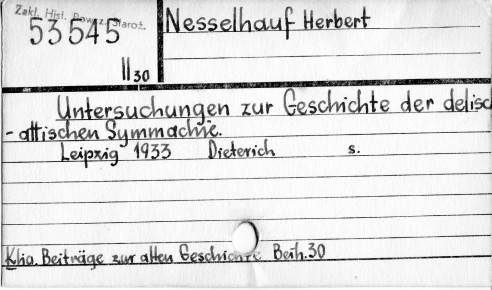 Zakl. Hist. Pow. z. Staroż.
53545
Nesselhauf Herbert
II 30
Untersuchungen zur Geschichte der delisc
- attischen Symmachie.
Leipzig 1933 Dieterich s.
Klio. Beiträge zur alten Geschichte Beih. 30